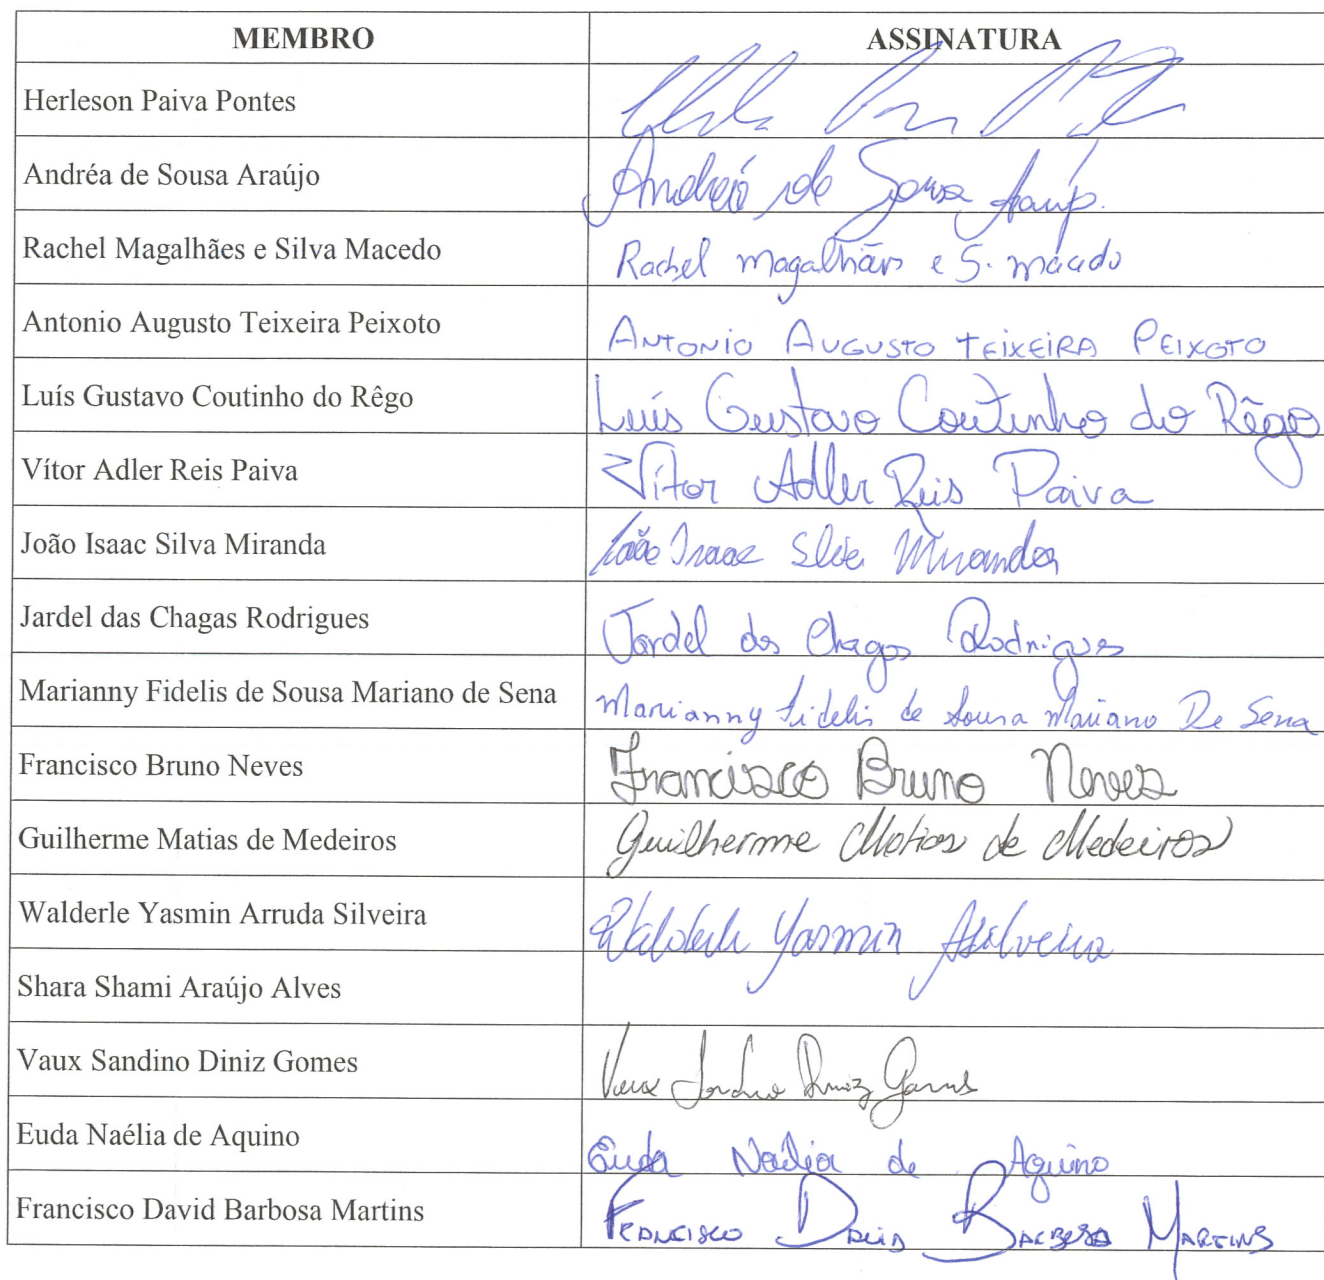 MEMBRO ASSINATURA
Herleson Paiva Pontes
Andréa de Sousa Araújo Andréa de Sousa Araújo.
Rachel Magalhães e Silva Macedo Rachel Magalhães e S. Macedo
Antonio Augusto Teixeira Peixoto ANTONIO AUGUSTO TEIXEIRA PEIXOTO
Luís Gustavo Coutinho do Rêgo Luís Gustavo Coutinho do Rêgo
Vítor Adler Reis Paiva Vítor Adller Reis Paiva
João Isaac Silva Miranda João Isaac Silva Miranda
Jardel das Chagas Rodrigues Jardel das Chagas Rodrigues
Marianny Fidelis de Sousa Mariano de Sena Marianny Fidelis de Sousa Mariano De Sena
Francisco Bruno Neves Francisco Bruno Neves
Guilherme Matias de Medeiros Guilherme Matias de Medeiros
Walderle Yasmin Arruda Silveira Walderle Yasmin ASilveira
Shara Shami Araújo Alves
Vaux Sandino Diniz Gomes Vaux Sandino Diniz Gomes
Euda Naélia de Aquino Euda Naélia de Aquino
Francisco David Barbosa Martins FRANCISCO DAVID BARBOSA MARTINS